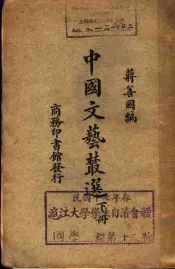 蔣善國編
中國文藝叢選
下冊
商務印書館發行
民國十七年春
滬江大學學生自治會贈